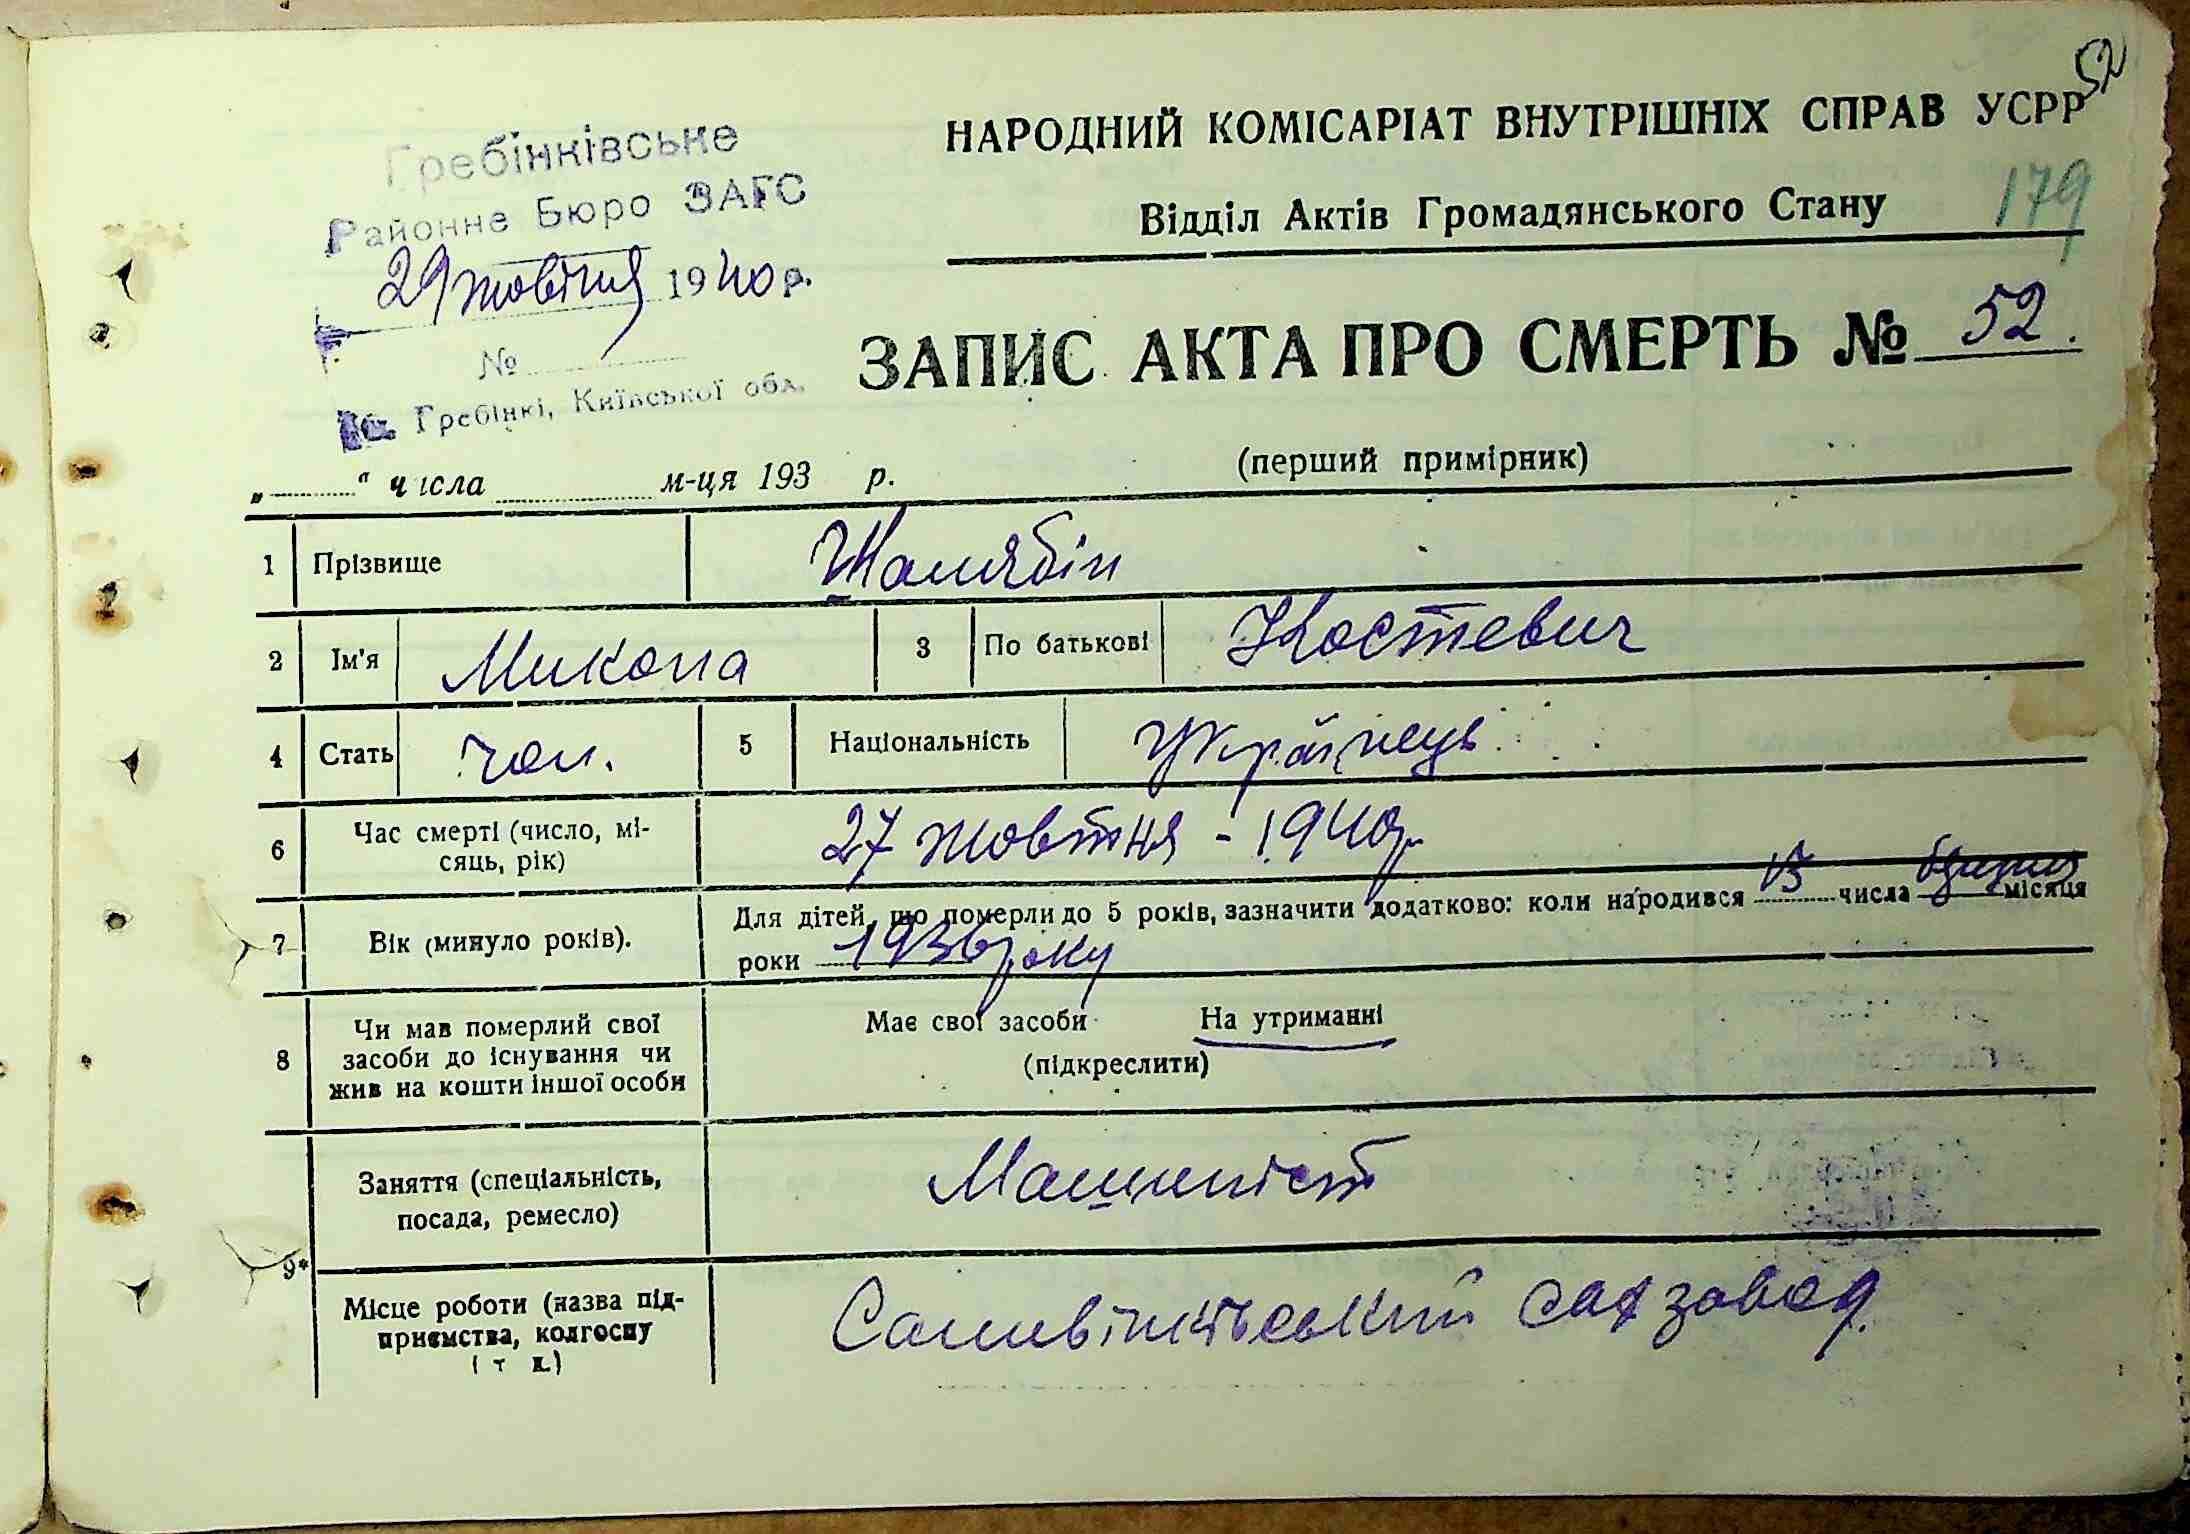 52
НАРОДНИЙ КОМІСАРІАТ ВНУТРІШНІХ СПРАВ УСРР
Відділ Актів Громадянського Стану 179
Гребінківське
Районне Бюро ЗАГС
29 жовтня 1940 р.
№
Гребінкі, Київської обл.
ЗАПИС АКТА ПРО СМЕРТЬ № 52.
(перший примірник)
„ “ числа м-ця 193 р.
1 Прізвище Шалябін
2 Ім'я Микола 3 По батькові Костевич
4 Стать чол. 5 Національність Українець
6 Час смерті (число, мі-
сяць, рік) 27 жовтня - 1940р
7 Вік (минуло років). Для дітей, що померли до 5 років, зазначити додатково: коли народився 15 числа місяця
роки 1936 року
8 Чи мав померлий свої
засоби до існування чи
жив на кошти іншої особи
Має свої засоби На утриманні
(підкреслити)
9* Заняття (спеціальність,
посада, ремесло) Машиніст
Місце роботи (назва під-
приємства, колгоспу
( т д.)
Саливінківський сахзавод.